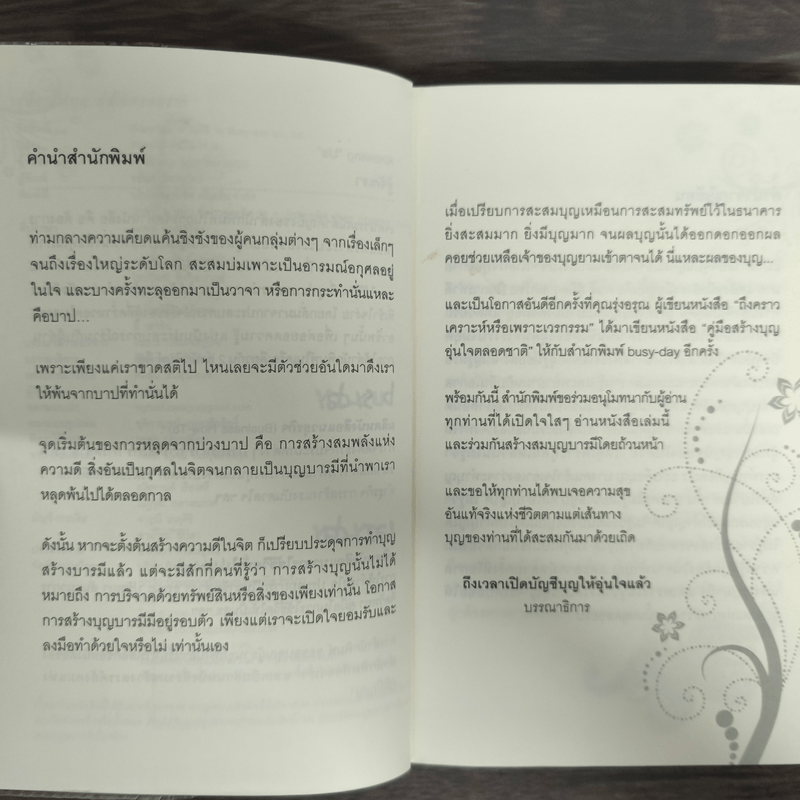 คำนำสำนักพิมพ์
ท่ามกลางความเคียดแค้นชิงชังของผู้คนกลุ่มต่างๆ จากเรื่องเล็กๆ
จนถึงเรื่องใหญ่ระดับโลก สะสมบ่มเพาะเป็นอารมณ์อกุศลอยู่
ในใจ และบางครั้งทะลุออกมาเป็นวาจา หรือการกระทำนั่นแหละ
คือบาป...
เพราะเพียงแค่เราขาดสติไป ไหนเลยจะมีตัวช่วยอันใดมาดึงเรา
ให้พ้นจากบาปที่ทำนั่นได้
จุดเริ่มต้นของการหลุดจากบ่วงบาป คือ การสร้างสมพลังแห่ง
ความดี สิ่งอันเป็นกุศลในจิตจนกลายเป็นบุญบารมีที่นำพาเรา
หลุดพ้นไปได้ตลอดกาล
ดังนั้น หากจะตั้งต้นสร้างความดีในจิต ก็เปรียบประดุจการทำบุญ
สร้างบารมีแล้ว แต่จะมีสักกี่คนที่รู้ว่า การสร้างบุญนั้นไม่ได้
หมายถึง การบริจาคด้วยทรัพย์สินหรือสิ่งของเพียงเท่านั้น โอกาส
การสร้างบุญบารมีมีอยู่รอบตัว เพียงแต่เราจะเปิดใจยอมรับและ
ลงมือทำด้วยใจหรือไม่ เท่านั้นเอง
เมื่อเปรียบการสะสมบุญเหมือนการสะสมทรัพย์ไว้ในธนาคาร
ยิ่งสะสมมาก ยิ่งมีบุญมาก จนผลบุญนั้นได้ออกดอกออกผล
คอยช่วยเหลือเจ้าของบุญยามเข้าตาจนได้ นี่แหละผลของบุญ...
และเป็นโอกาสอันดีอีกครั้งที่คุณรุ่งอรุณ ผู้เขียนหนังสือ “ถึงคราว
เคราะห์หรือเพราะเวรกรรม” ได้มาเขียนหนังสือ “คู่มือสร้างบุญ
อุ่นใจตลอดชาติ” ให้กับสำนักพิมพ์ busy-day อีกครั้ง
พร้อมกันนี้ สำนักพิมพ์ขอร่วมอนุโมทนากับผู้อ่าน
ทุกท่านที่ได้เปิดใจใสๆ อ่านหนังสือเล่มนี้
และร่วมกันสร้างสมบุญบารมีโดยถ้วนหน้า
และขอให้ทุกท่านได้พบเจอความสุข
อันแท้จริงแห่งชีวิตตามแต่เส้นทาง
บุญของท่านที่ได้สะสมกันมาด้วยเถิด
ถึงเวลาเปิดบัญชีบุญให้อุ่นใจแล้ว
บรรณาธิการ